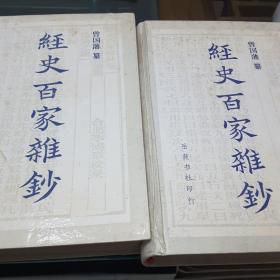 曾国藩 纂
經史百家雜鈔
曾国藩 纂
經史百家雜鈔
岳麓书社印行